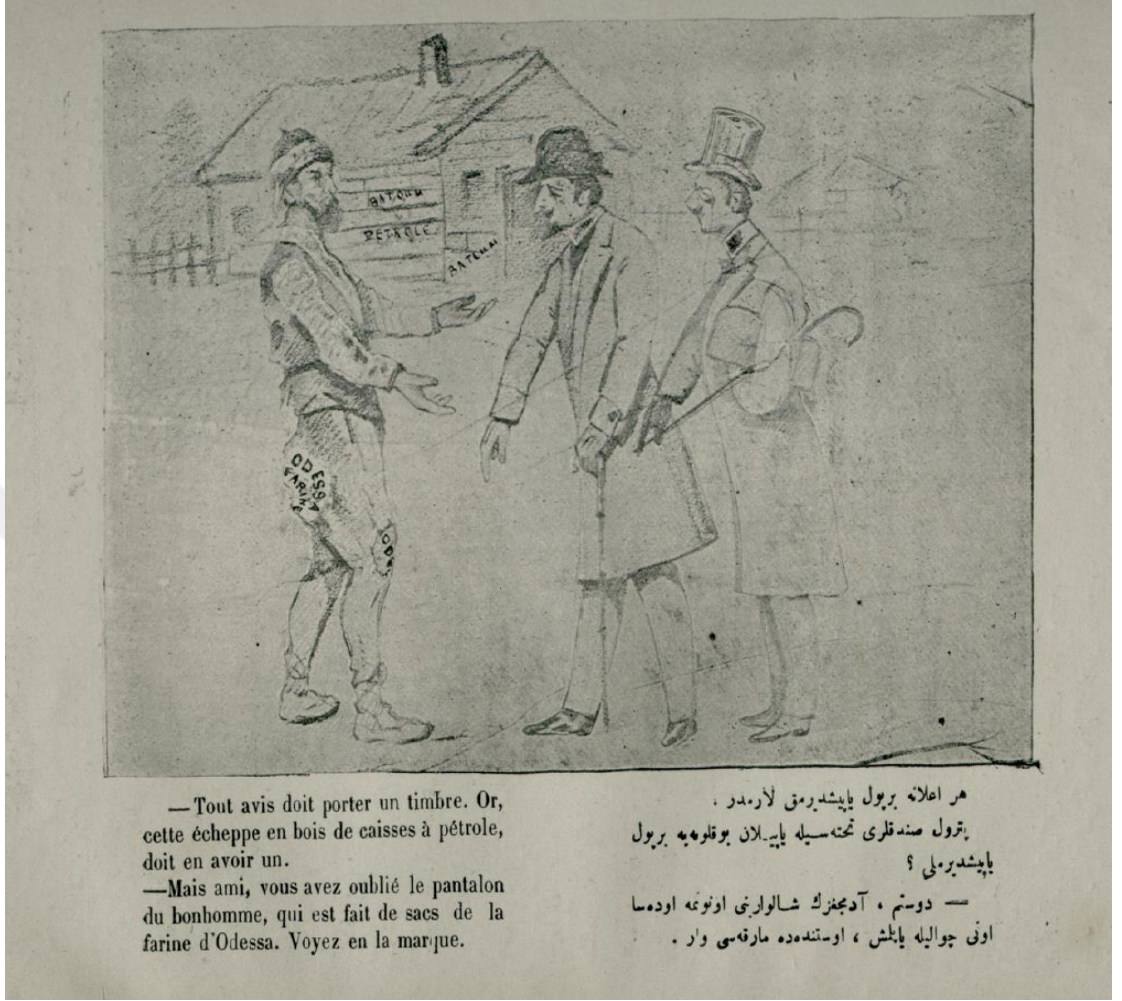 BATOUM
PETROLE
BATOUM
ODESSA
FARINE
ODE
—Tout avis doit porter un timbre. Or,
cette écheppe en bois de caisses à pétrole,
doit en avoir un.
—Mais ami, vous avez oublié le pantalon
du bonhomme, qui est fait de sacs de la
farine d'Odessa. Voyez en la marque.
هر اعلانه برپول یاپیشدیرمق لازمدر .
پترول صندقلری تخته‌سیله یاپیلان بوقلوبه‌یه برپول
یاپیشدیرملی ؟
— دوستم ، آدمجغزك شالوارینی اونوتمه اوده‌سا
اونی چوالیله یاپلمش ، اوستنده‌ده مارقه‌سی وار .